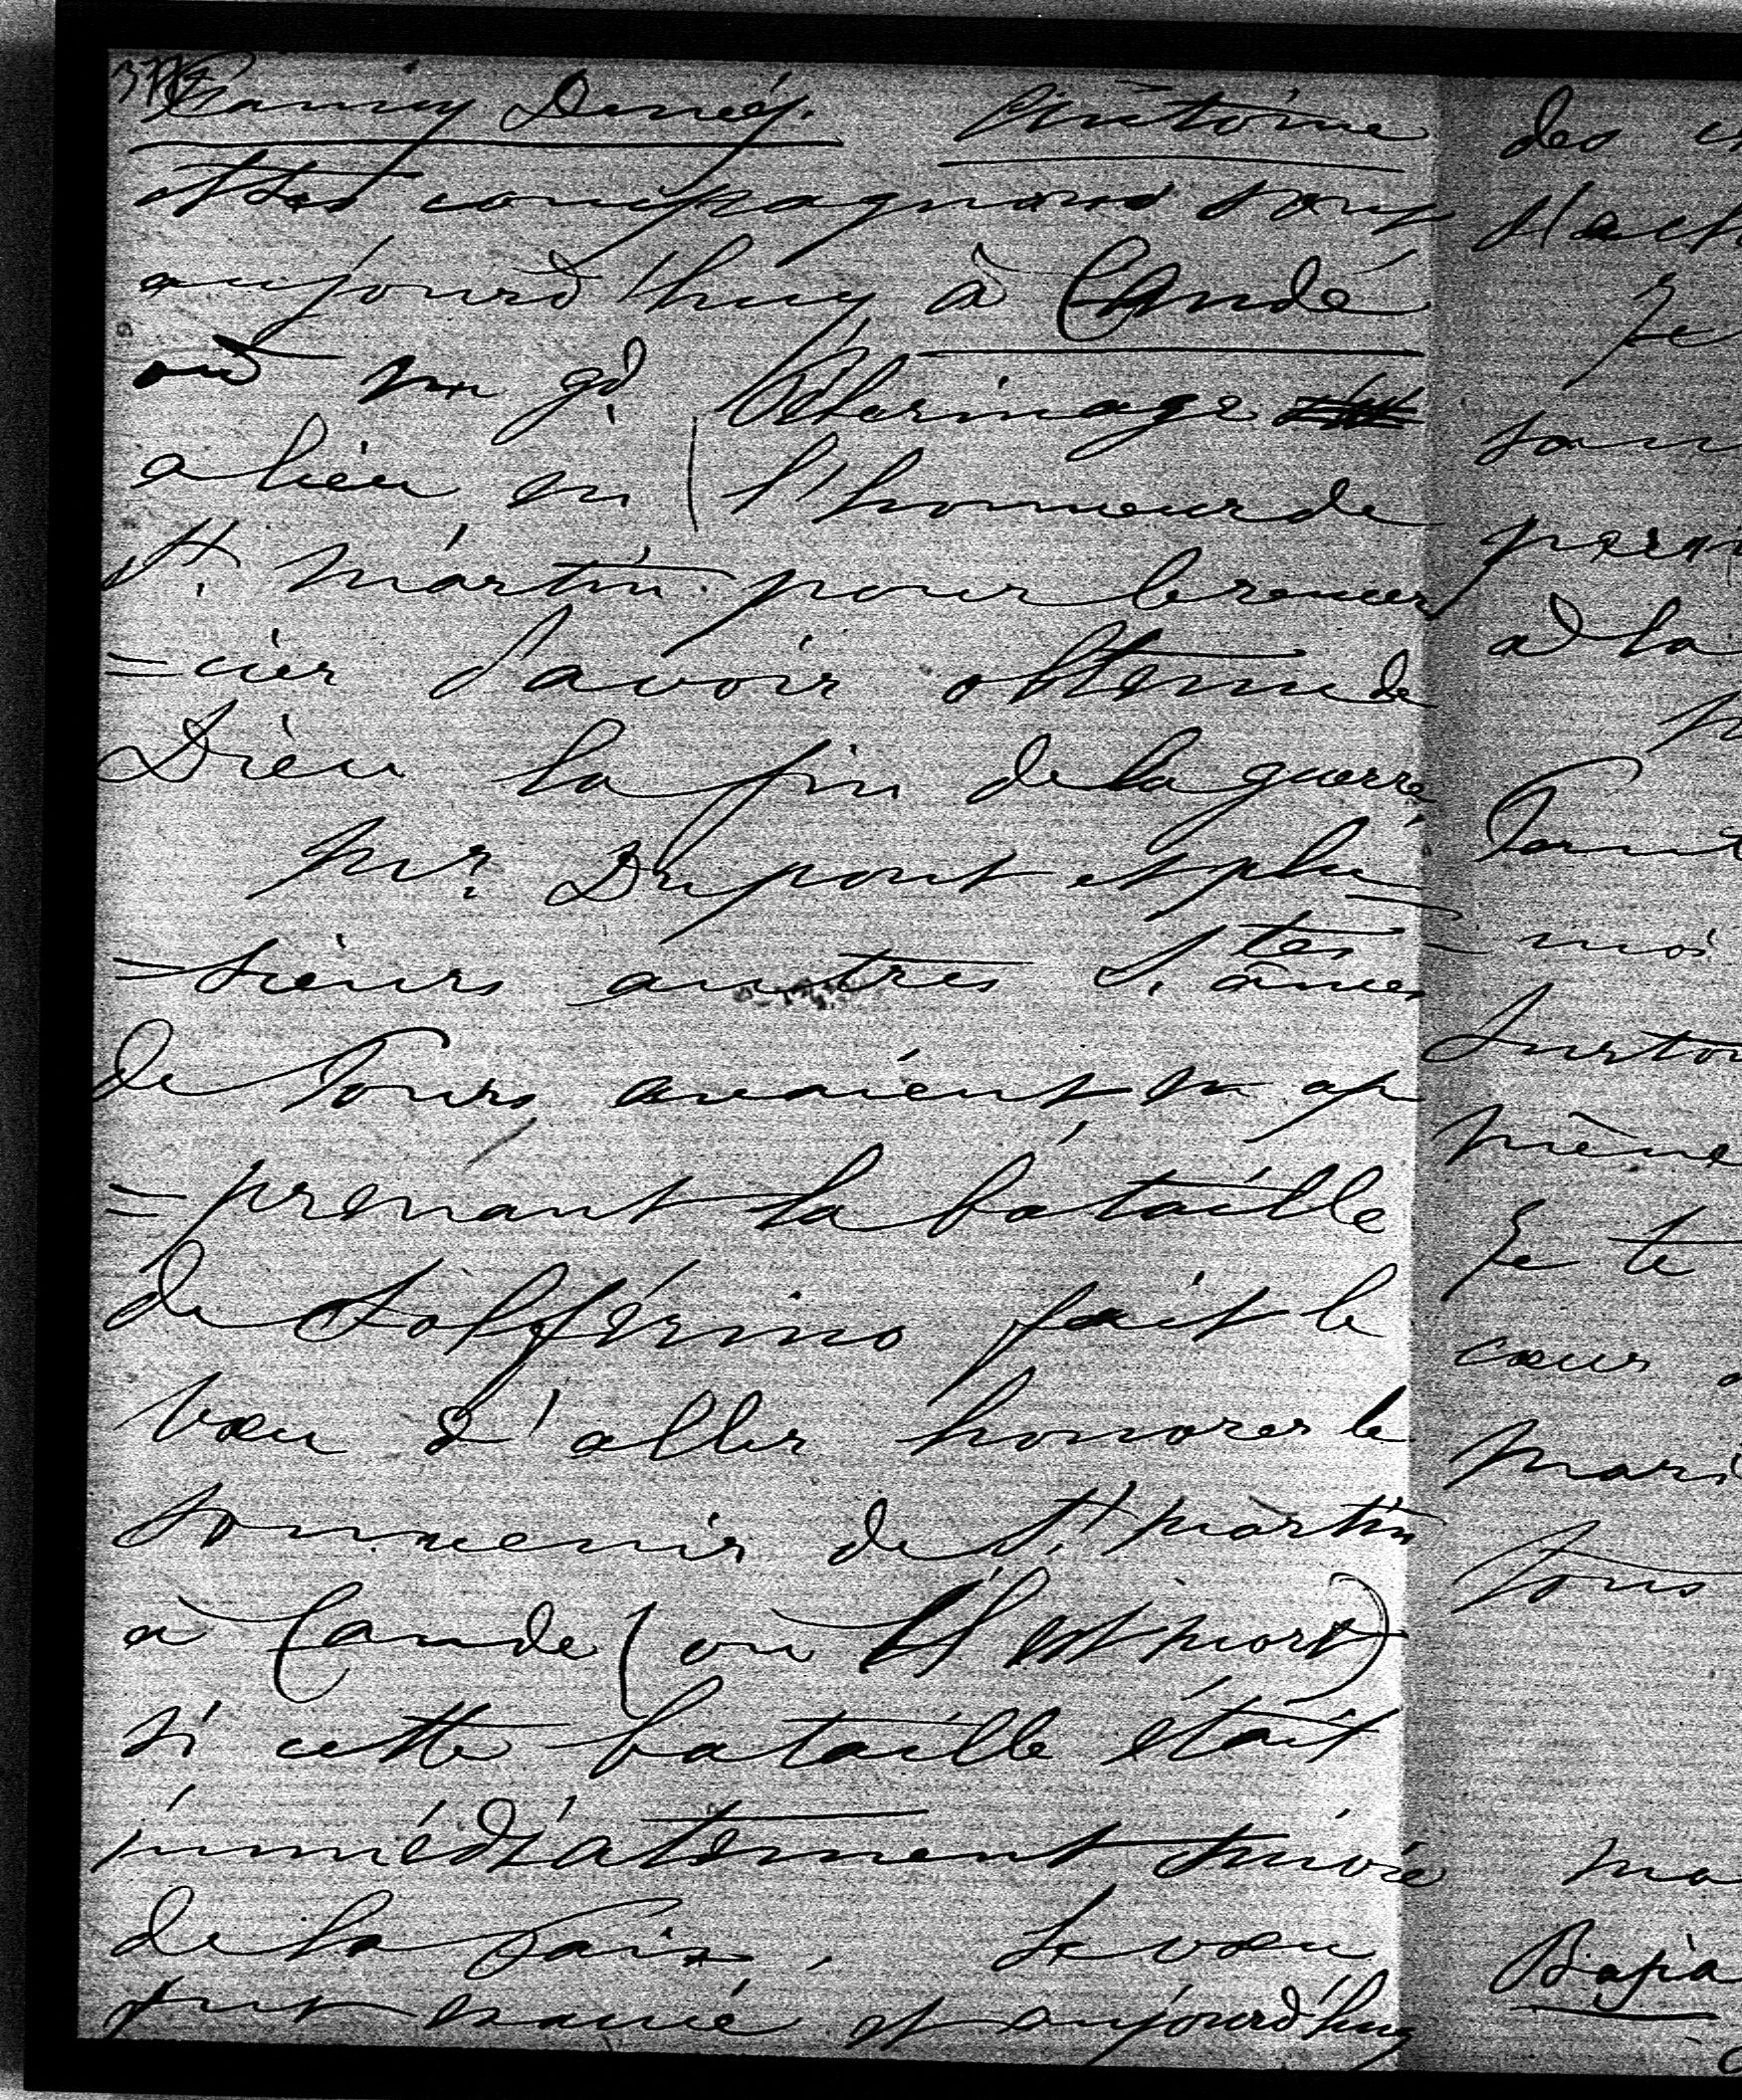 Fanny Denéy. Antoine
et ses compagnons sont
aujourd'huy à Candé
où un gd. Pélerinage
a lieu en l'honneur de
St. Martin pour le remer
=cier d'avoir obtenu de
Dieu la fin de la guerre
Mr. Dupont et plu
=sieurs autres Stes âmes
de Tours avaient en ap
=prenant la bataille
de Solférino fait le
vœu d'aller honorer le
souvenir de St. Martin
à Cande (où il est mort)
si cette bataille était
immédiatement suivie
de la Paix. Le vœu
fut exaucé et aujourd'huy
des
Je
à la
moi
Surtou
même
Je te
cœur
Mari
tous
ma